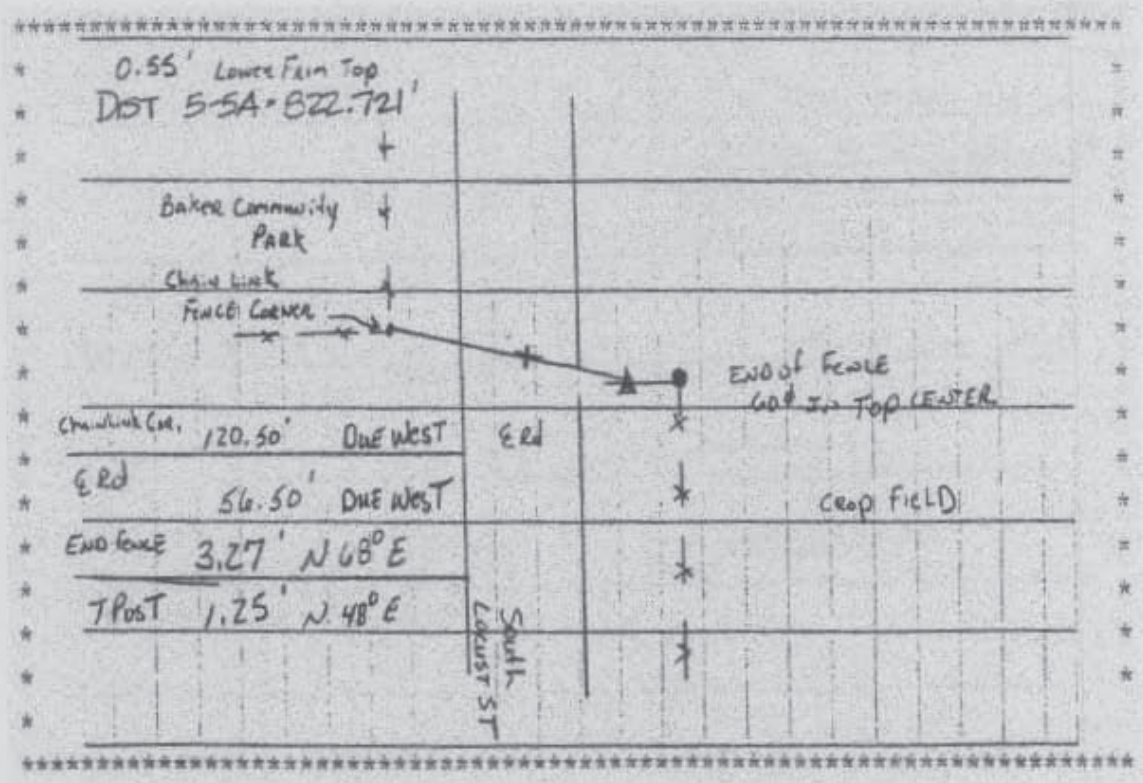 0.55' Lower From Top
DIST 5-5A = 822.721'
Baker Community
Park
Chain Link
Fence Corner
End of Fence
60d In Top Center
Chainlink Cor. 120.50' Due West
℄ Rd
℄ Rd 56.50' Due West
Crop Field
End Fence 3.27' N 68° E
T Post 1.25' N 48° E
South
Locust St